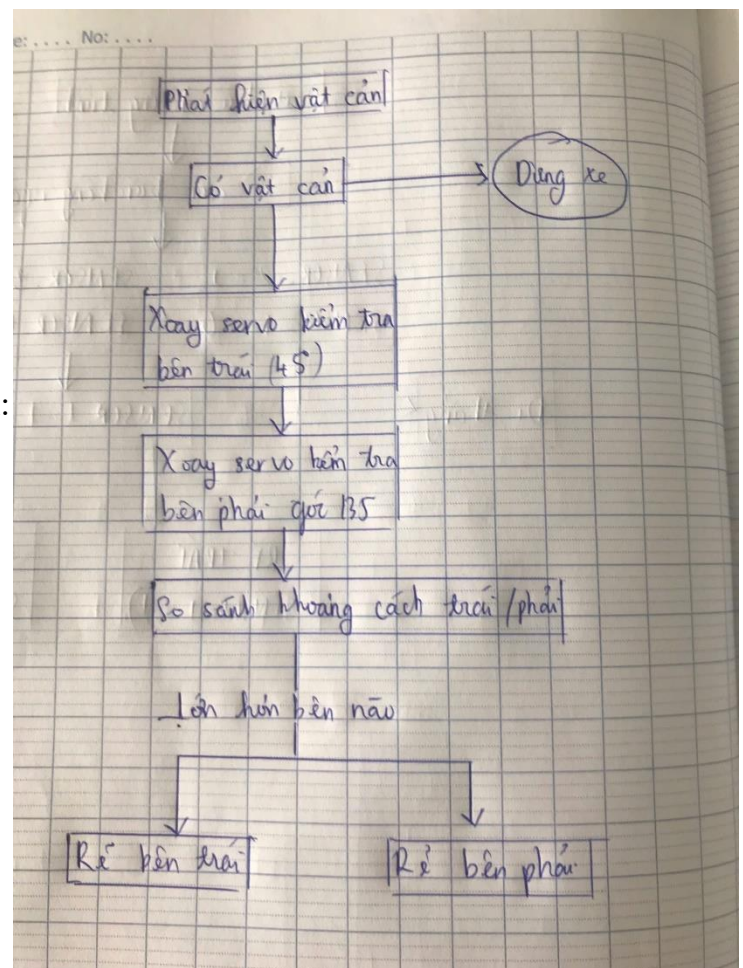 e: .... No: ....
Phát hiện vật cản
Có vật cản
Dừng xe
Xoay servo kiểm tra
bên trái (45°)
:
Xoay servo kiểm tra
bên phải góc 135
So sánh khoảng cách trái/phải
Lớn hơn bên nào
Rẽ bên trái
Rẽ bên phải